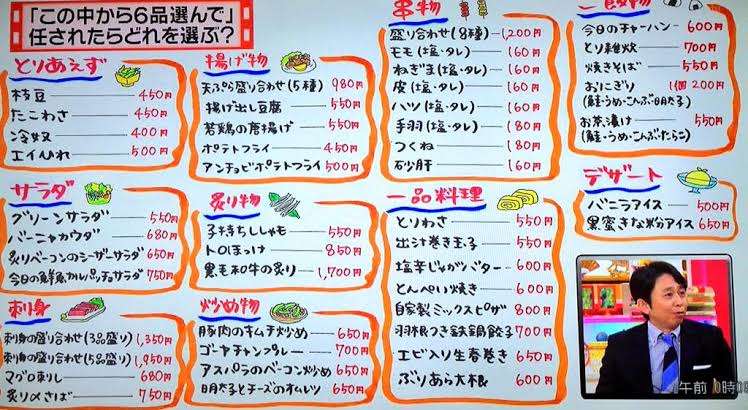 「この中から6品選んで」
任されたらどれを選ぶ?
とりあえず
枝豆 450円
たこわさ 450円
冷奴 400円
エイひれ 500円
サラダ
グリーンサラダ 550円
バーニャカウダ 680円
炙りベーコンのシーザーサラダ 650円
今日の鮮魚カルパッチョサラダ 750円
刺身
刺身の盛り合わせ(3品盛り) 1,350円
刺身の盛り合わせ(5品盛り) 1,950円
マグロ刺し 680円
炙り〆さば 750円
揚げ物
天ぷら盛り合わせ(5種) 980円
揚げ出し豆腐 550円
若鶏の唐揚げ 550円
ポテトフライ 450円
アンチョビポテトフライ 500円
炙り物
子持ちししゃも 550円
トロほっけ 850円
黒毛和牛の炙り 1,700円
炒め物
豚肉のキムチ炒め 650円
ゴーヤチャンプルー 700円
アスパラのベーコン炒め 650円
明太子とチーズのオムレツ 650円
串物
盛り合わせ(8種) 1,200円
モモ(塩・タレ) 160円
ねぎま(塩・タレ) 160円
皮(塩・タレ) 160円
ハツ(塩・タレ) 160円
手羽(塩・タレ) 180円
つくね 180円
砂肝 160円
一品料理
とりわさ 550円
出汁巻き玉子 550円
塩辛じゃがバター 600円
とんぺい焼き 600円
自家製ミックスピザ 800円
羽根つき鉄鍋餃子 700円
エビ入り生春巻き 650円
ぶりあら大根 600円
ご飯物
今日のチャーハン 600円
とり雑炊 700円
焼きそば 550円
おにぎり 1個 200円
(鮭・うめ・こんぶ・明太子)
お茶漬け 550円
(鮭・うめ・こんぶ・たらこ)
デザート
バニラアイス 500円
黒蜜きな粉アイス 650円
午前